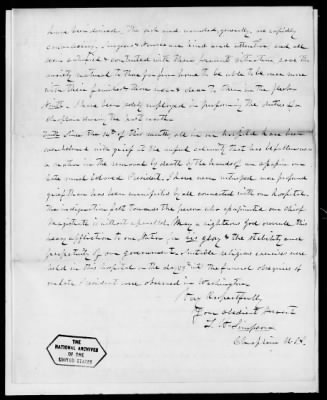 have been devised. The sick and wounded, generally, are rapidly
convalescing. Surgeons & Nurses are kind and attentive, and all
seem satisfied & contented with their present situation save the
anxiety natural to those far from home to be able to be once more
with their families & those near & dear to them in the
North. I have been solely employed in performing the duties of a
Chaplain during the past month.
Since the 14th of this month all in our Hospital have been
overwhelmed with grief at the awful calamity that has befallen us
as a nation in the removal by death by the hands of an assassin our
late much beloved President. I have never witnessed more profound
grief than has been manifested by all connected with our hospital.
The indignation felt towards the person who assassinated our Chief
Magistrate is without a parallel. May a righteous God overrule this
heavy affliction to our Nation, to his glory & the stability and
perpetuity of our Government. Suitable religious exercises were
held in this hospital on the day in the funeral obsequies of
our late President were observed in Washington.
Very Respectfully
Your obedient Servant
Simpson
Chaplain U.S.A.
THE
NATIONAL ARCHIVES
OF THE
UNITED STATES